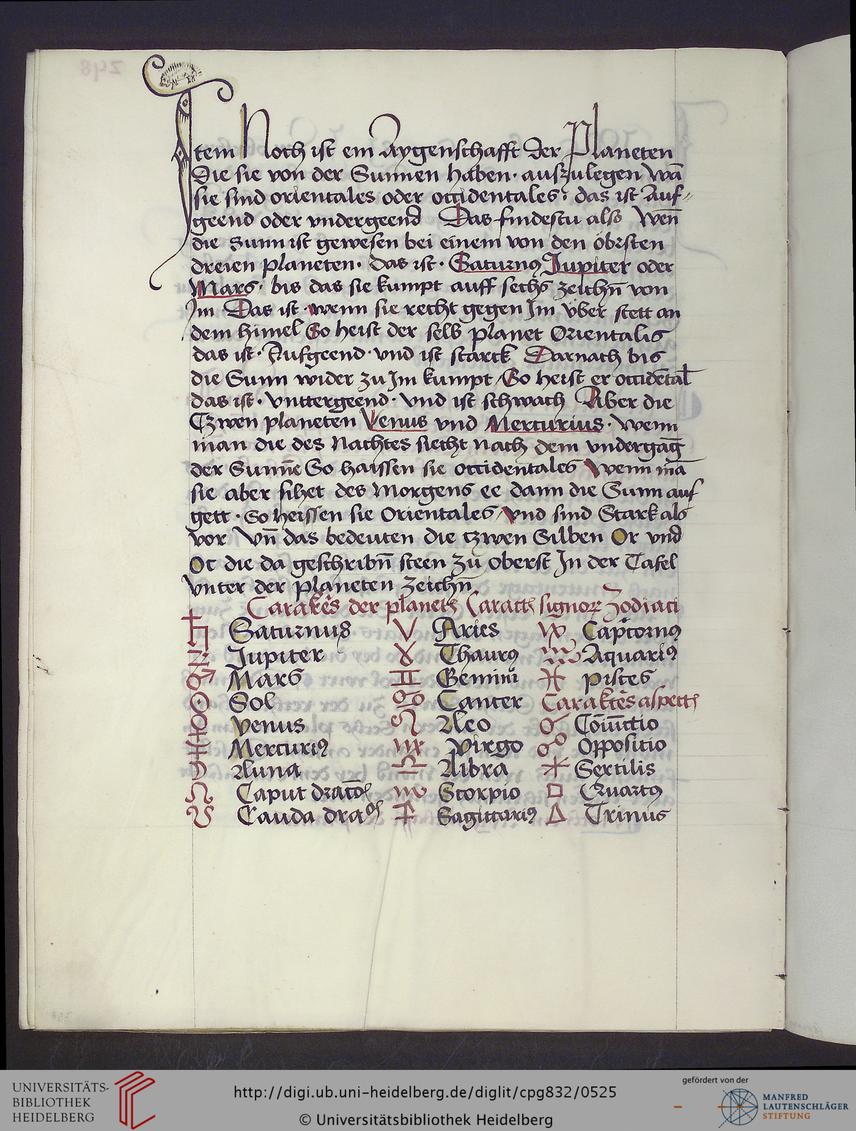 Item Noch ist ein Aygenschafft der Planeten
Die sie von der Sunnen haben · auszulegen wā
sie sind orientales oder occidentales : das ist Auf⸗
geend oder vndergeend Das findestu also Weñ
die Sunn ist gewesen bei einem von den öbrsten
dreien planeten · das ist · Saturnꝯ Jupiter oder
Mars · bis das sie kumpt auff sechs zeichñ von
Im Das ist · wenn sie recht gegen Im v̈ber stett an
dem himel So heist der selb planet Orientalis
das ist · Aufgeend · vnd ist starck Darnach bis
die Sunn wider zu Im kumpt / So heist er occidētal
das ist · vnttergeend · vnd ist schwach Aber die
Czwen planeten Venus vnd Mercurius · wenn
man die des Nachtes siecht nach dem vndergāg
der Suñe So haissen sie occidentales Wenn mā
sie aber sihet des Morgens ee dann die Sunn auf
gett · So heissen sie Orientales / vnd sind Stark als
vor Vñ das bedeuten die czwen Silben Or vnd
Oc die da geschribñ steen zu oberst In der Tafel
vnter der planeten zeichñ
♄ Saturnus ♈ Aries ♑ Cap̄cornꝯ
♃ Jupiter ♉ Thaurꝯ ♒ Aquariꝯ
♂ Mars ♊ Gemini ♓ pisces
☉ Sol ♋ Cancer
♀ Venus ♌ Leo ☌ Cōiūctio
☿ Mercuriꝯ ♍ Virgo ☍ Oppositio
☽ Luna ♎ Libra ⚹ Sextilis
☊ Caput ♏ Scorpio □ Quartꝯ
☋ Cauda ♐ Sagittariꝯ △ Trinus
248
UNIVERSITÄTS-
BIBLIOTHEK
HEIDELBERG
http://digi.ub.uni-heidelberg.de/diglit/cpg832/0525
© Universitätsbibliothek Heidelberg
gefördert von der
MANFRED
LAUTENSCHLÄGER
STIFTUNG